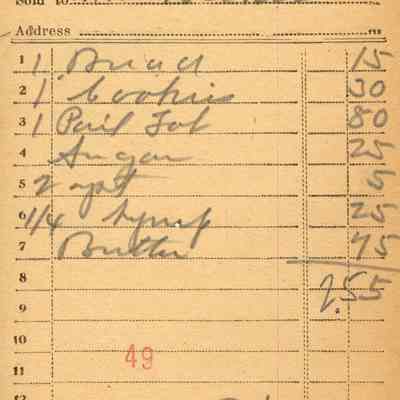 Sold to
Address
1 1 Bread 15
2 1 Cookies 30
3 1 Pail 80
4 Sugar 25
5 2 5
6 1/4 Syrup 25
7 Butter 75
8 2.55
9
10
49
11
12